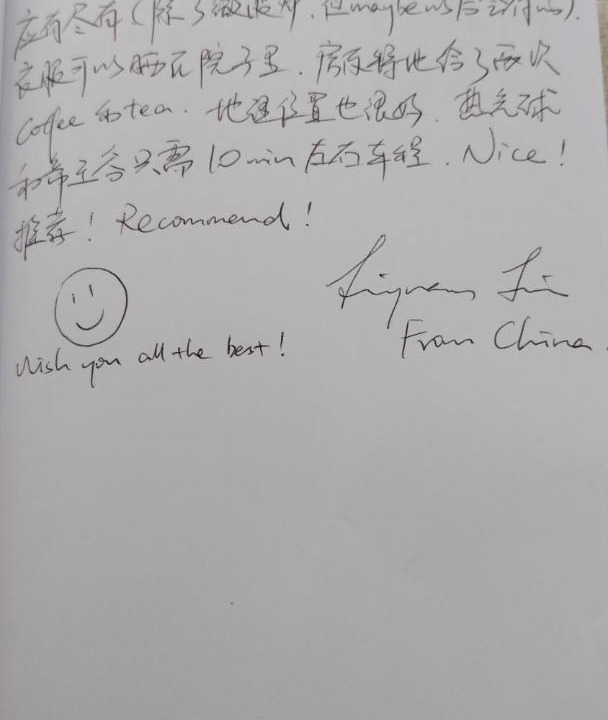 应有尽有(除了微波炉,但maybe以后会有的).
衣服可以晒在院子里.房东特地给了两次
coffee和tea.地理位置也很好.热气球
和帝王谷只需10min左右车程.Nice!
推荐!Recommend!
Wish you all the best!
From China.